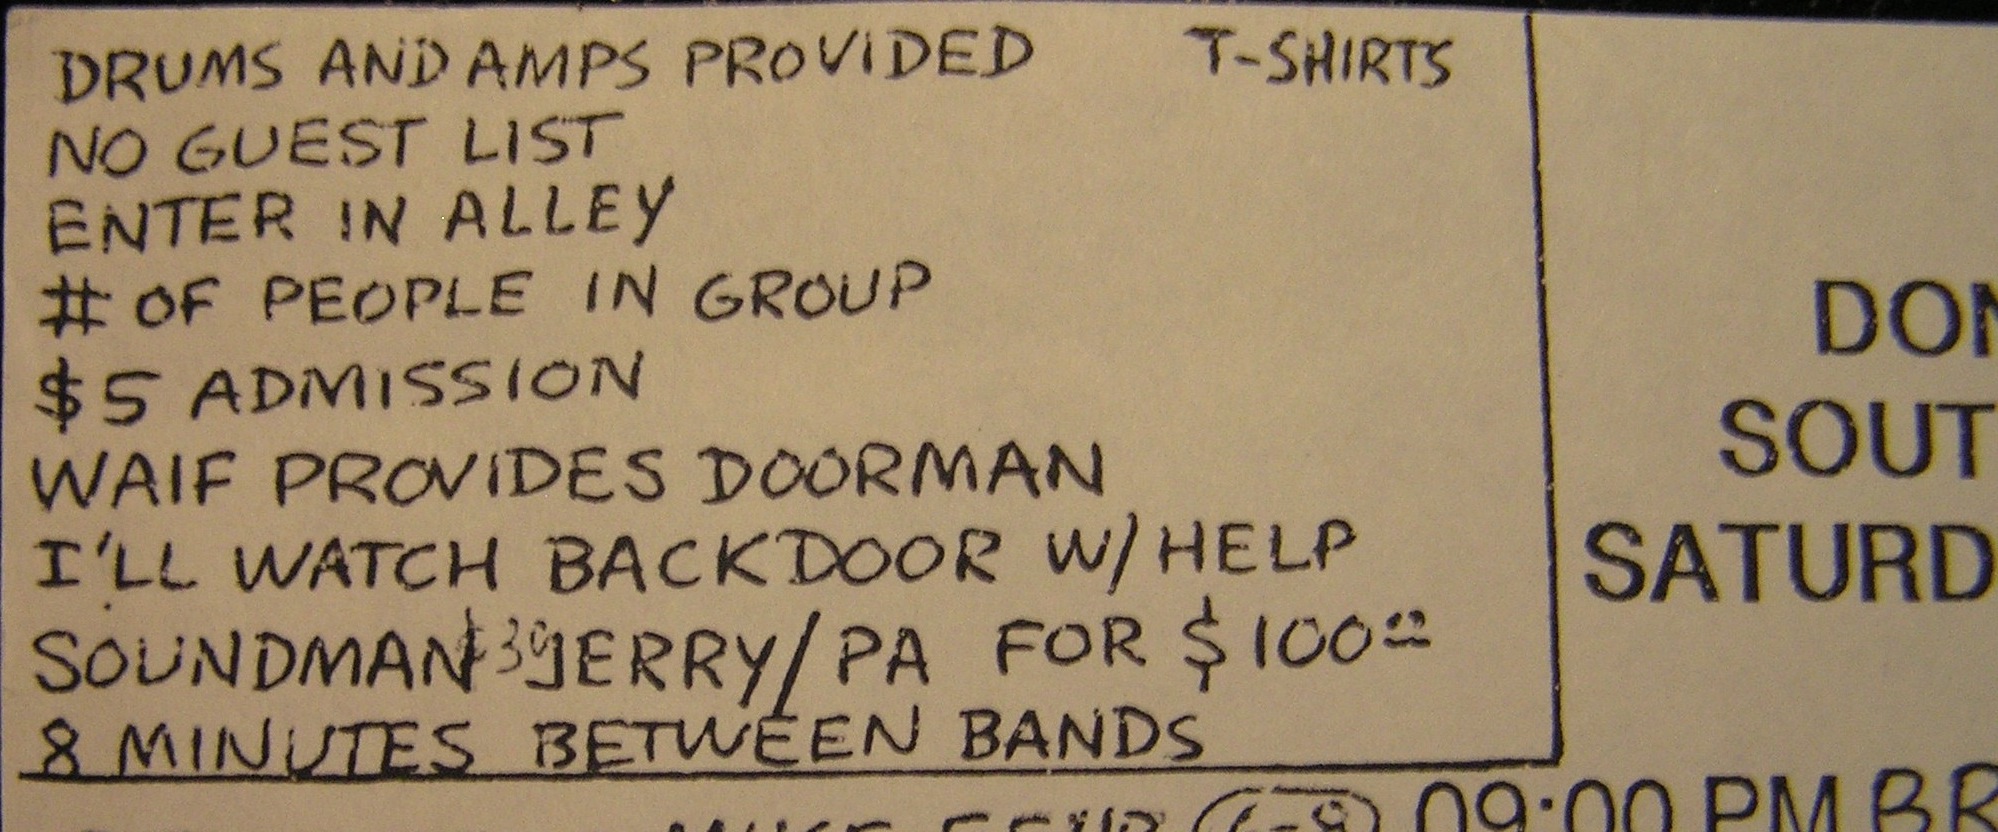 DRUMS AND AMPS PROVIDED T-SHIRTS
NO GUEST LIST
ENTER IN ALLEY
# OF PEOPLE IN GROUP
$5 ADMISSION
WAIF PROVIDES DOORMAN
I'LL WATCH BACKDOOR W/ HELP
SOUNDMAN $30 JERRY/PA FOR $100
8 MINUTES BETWEEN BANDS
DON
SOUT
SATURD
09:00 PM BR